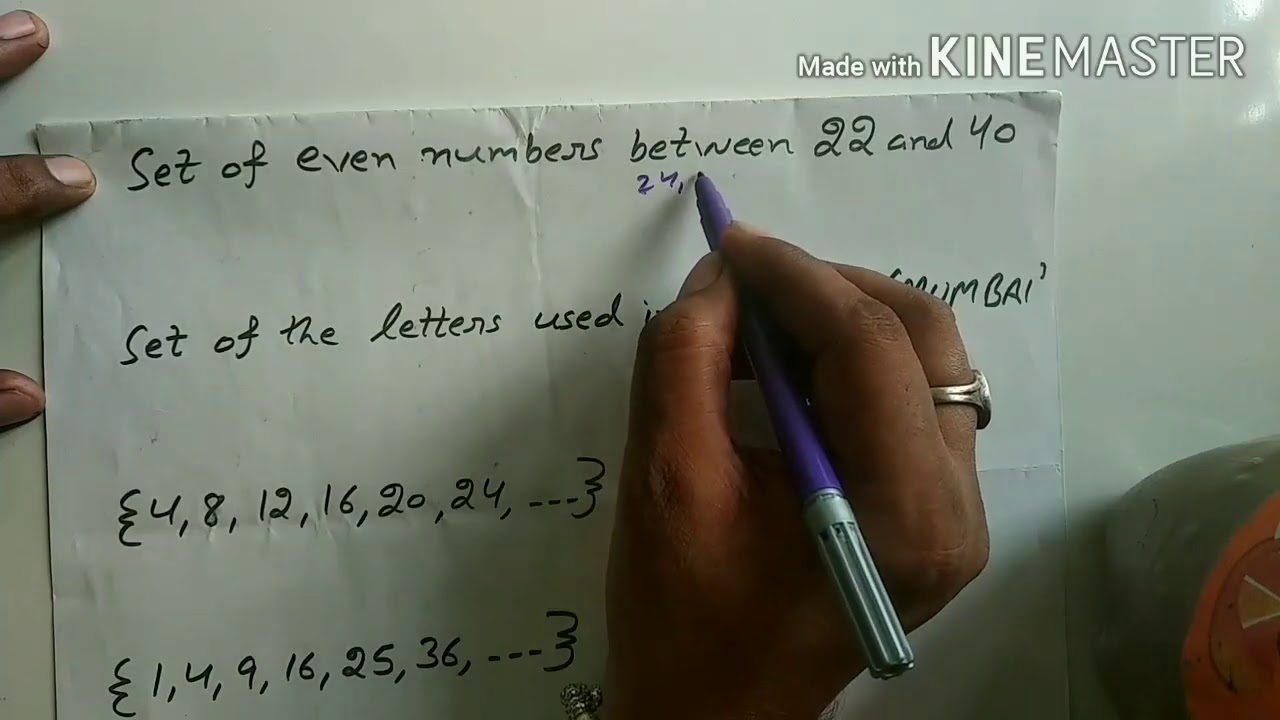 Made with KINEMASTER
Set of even numbers between 22 and 40
24,
Set of the letters used 'MUMBAI'
{4, 8, 12, 16, 20, 24, ---}
{1, 4, 9, 16, 25, 36, ---}